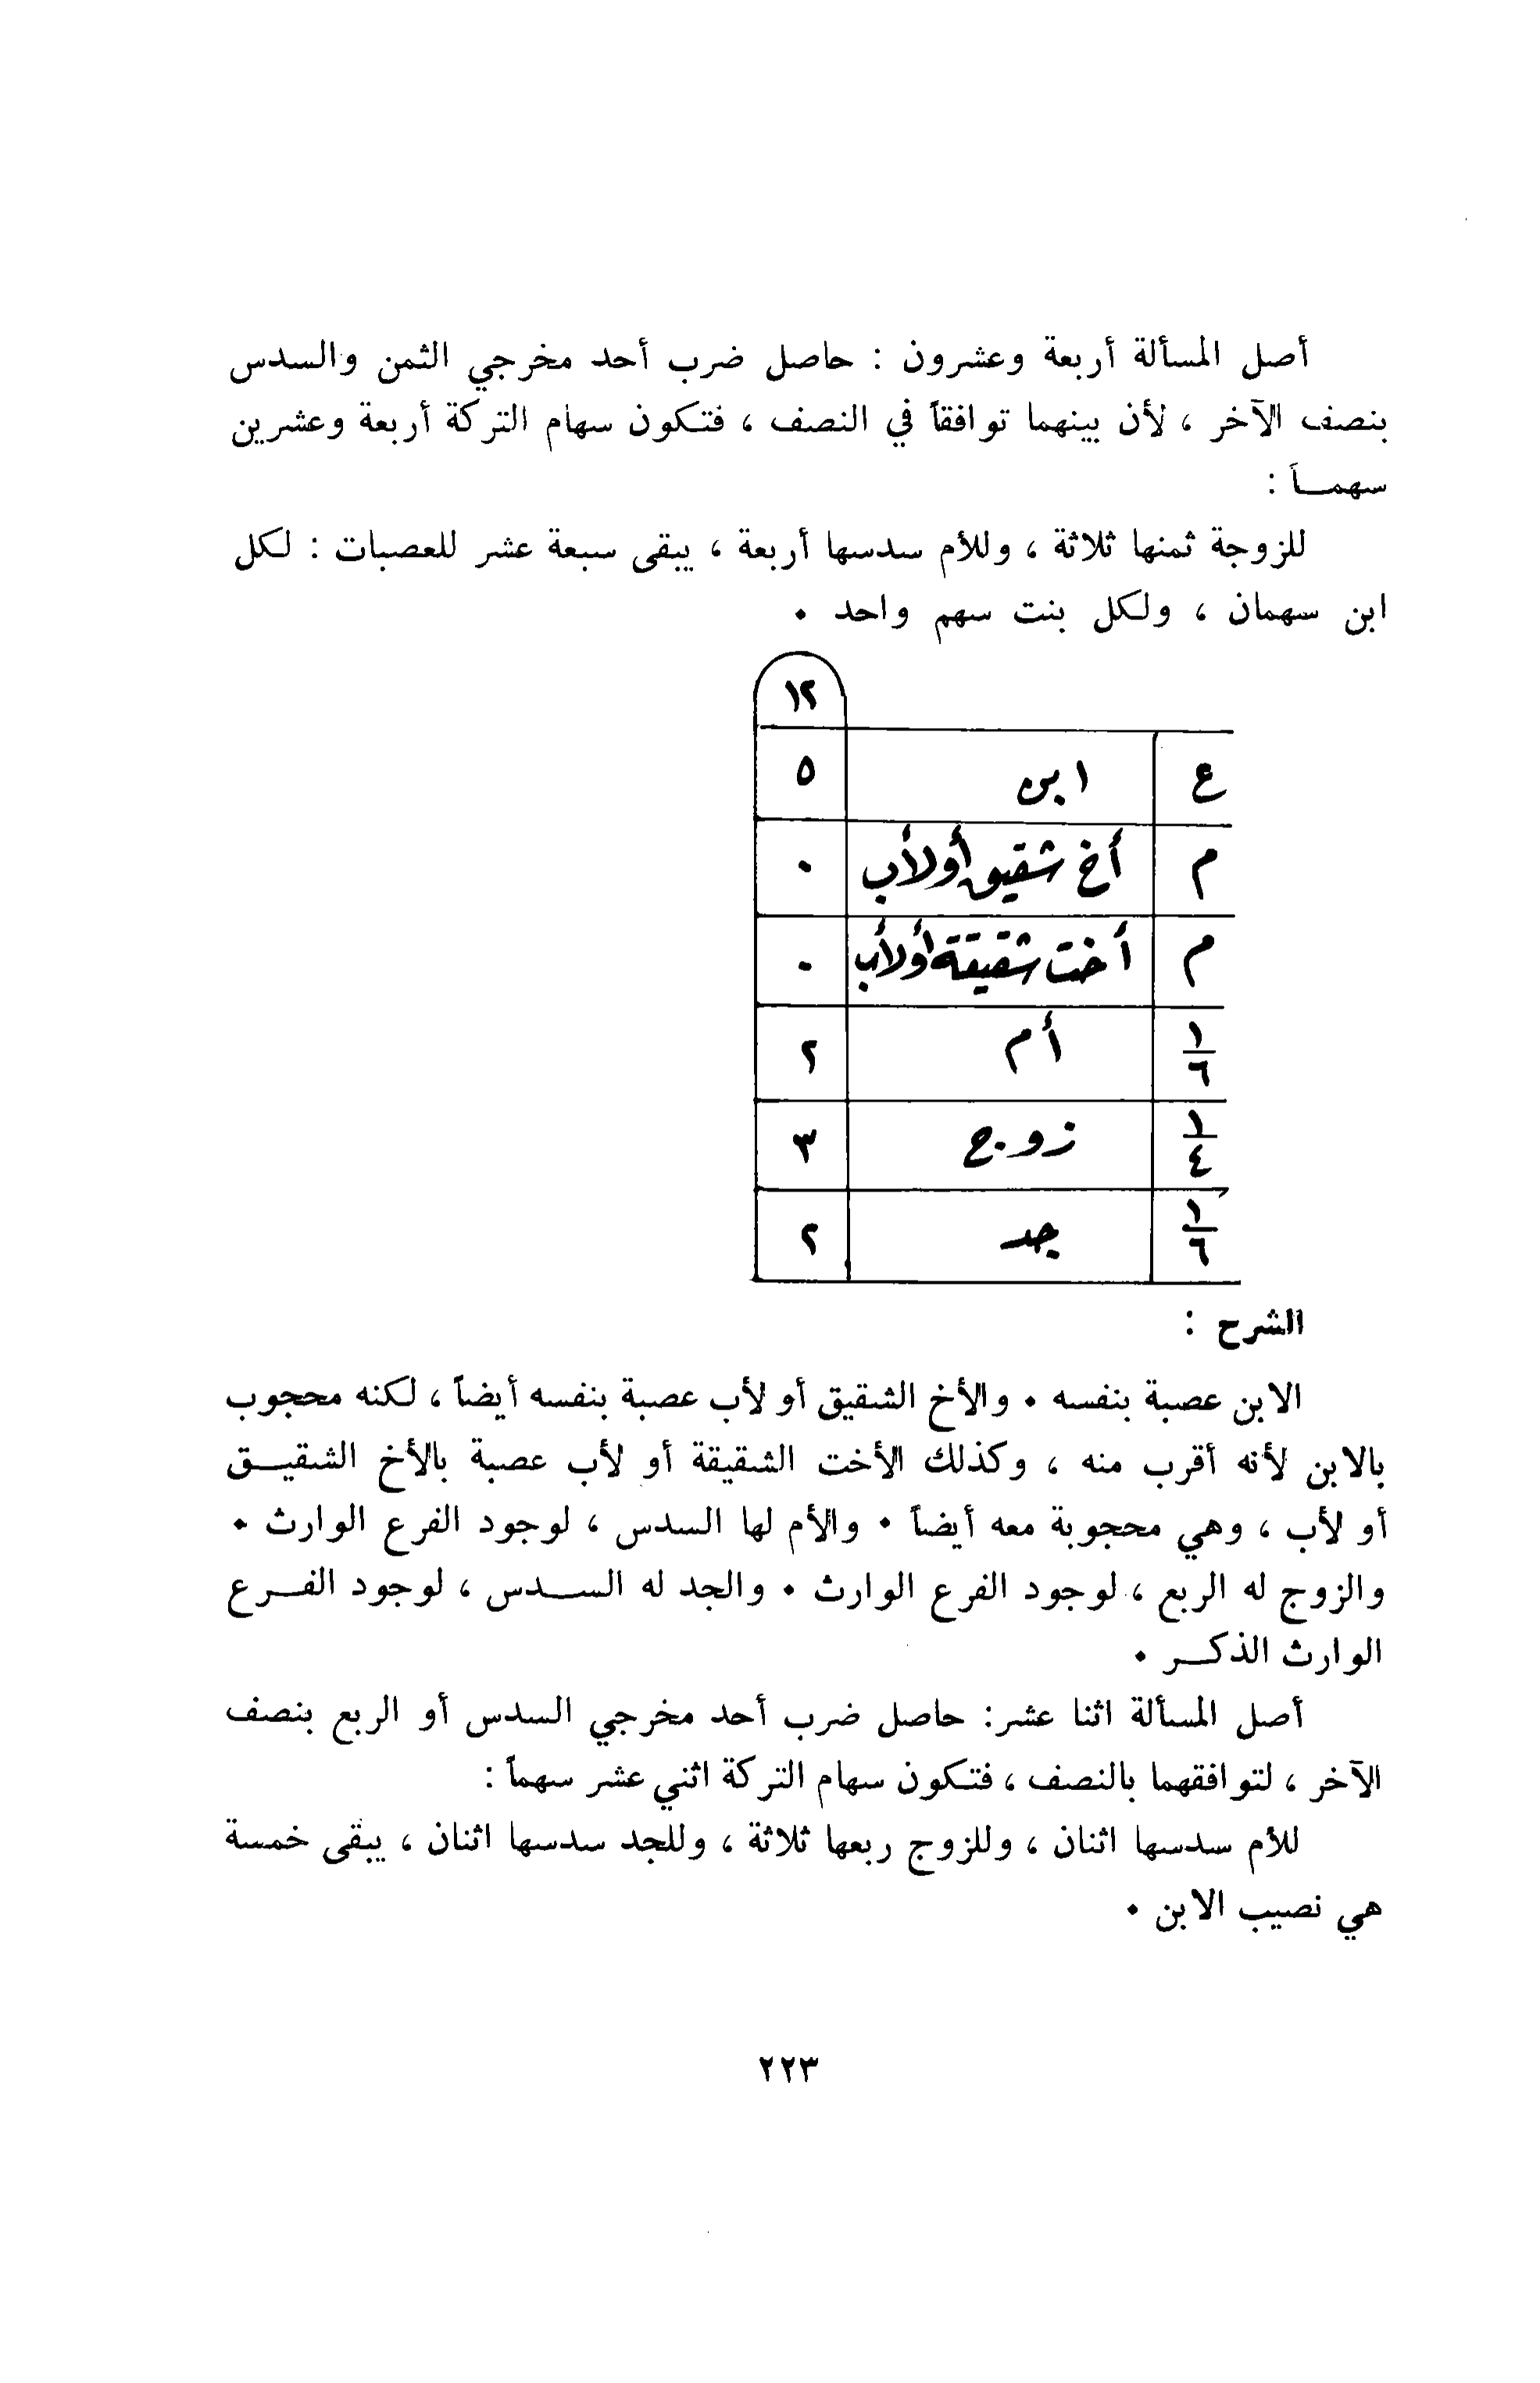 أصل المسألة أربعة وعشرون : حاصل ضرب أحد مخرجي الثمن والسدس
بنصف الآخر ، لأن بينهما توافقاً في النصف ، فتكون سهام التركة أربعة وعشرين
سهمـاً :
للزوجة ثمنها ثلاثة ، وللأم سدسها أربعة ، يبقى سبعة عشر للعصبات : لكل
ابن سهمان ، ولكل بنت سهم واحد .
١٢
ع ابن ٥
م أخ شقيق أو لأب ٠
م أخت شقيقة أو لأب ٠
١/٦ أم ٢
١/٤ زوج ٣
١/٦ جد ٢
الشرح :
الابن عصبة بنفسه . والأخ الشقيق أو لأب عصبة بنفسه أيضاً ، لكنه محجوب
بالابن لأنه أقرب منه ، وكذلك الأخت الشقيقة أو لأب عصبة بالأخ الشقيـق
أو لأب ، وهي محجوبة معه أيضاً . والأم لها السدس ، لوجود الفرع الوارث .
والزوج له الربع ، لوجود الفرع الوارث . والجد له السـدس ، لوجود الفـرع
الوارث الذكـر .
أصل المسألة اثنا عشر: حاصل ضرب أحد مخرجي السدس أو الربع بنصف
الآخر ، لتوافقهما بالنصف ، فتكون سهام التركة اثني عشر سهماً :
للأم سدسها اثنان ، وللزوج ربعها ثلاثة ، وللجد سدسها اثنان ، يبقى خمسة
هي نصيب الابن .
٢٢٣